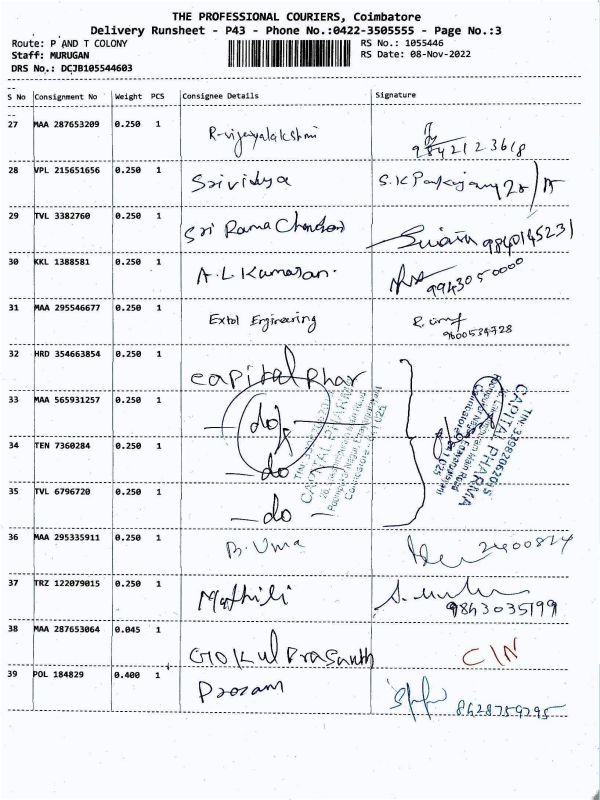 THE PROFESSIONAL COURIERS, Coimbatore
Delivery Runsheet - P43 - Phone No.:0422-3505555 - Page No.:3
Route: P AND T COLONY RS No.: 1055446
Staff: MURUGAN RS Date: 08-Nov-2022
DRS No.: DCJB105544603
S No Consignment No Weight PCS Consignee Details Signature
27 MAA 287653209 0.250 1 R-vijayalakshmi
9842123618
28 VPL 215651656 0.250 1 Srividya
29 TVL 3382760 0.250 1 Sri Rama Chandran 9840145231
30 KKL 1388581 0.250 1 A.L. Kumaran. 9943050000
31 MAA 295546677 0.250 1 Extol Engineering
9600534728
32 HRD 354663854 0.250 1 capital phar
33 MAA 565931257 0.250 1 -do-
34 TEN 7360284 0.250 1 -do-
35 TVL 6796720 0.250 1 -do-
CAPITAL PHARMA
CAPITAL PHARMA
36 MAA 295335911 0.250 1 B. Uma
37 TRZ 122079015 0.250 1 Mathili
9843035199
38 MAA 287653064 0.045 1 GOKUL Prasanth C/N
39 POL 184829 0.400 1
8628759295